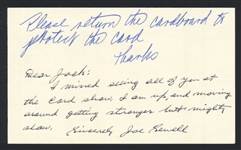 Please return the cardboard to
protect the card
Thanks
Dear Jack:
I missed seeing all of you at
the card show, I am up, and moving
around getting stronger but mighty
slow. Sincerely, Joe Sewell